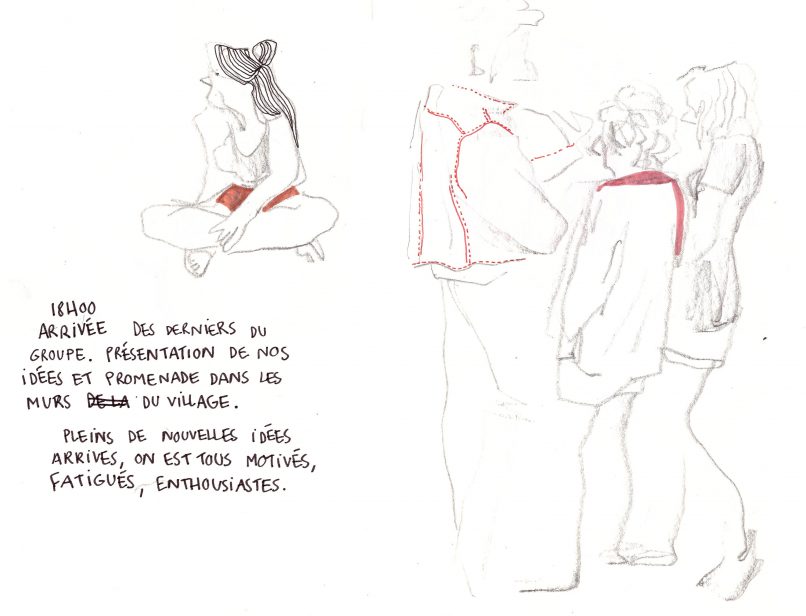 18H00
ARRIVÉE DES DERNIERS DU
GROUPE. PRÉSENTATION DE NOS
IDÉES ET PROMENADE DANS LES
MURS DE LA DU VILLAGE.
PLEINS DE NOUVELLES IDÉES
ARRIVES, ON EST TOUS MOTIVÉS,
FATIGUÉS, ENTHOUSIASTES.